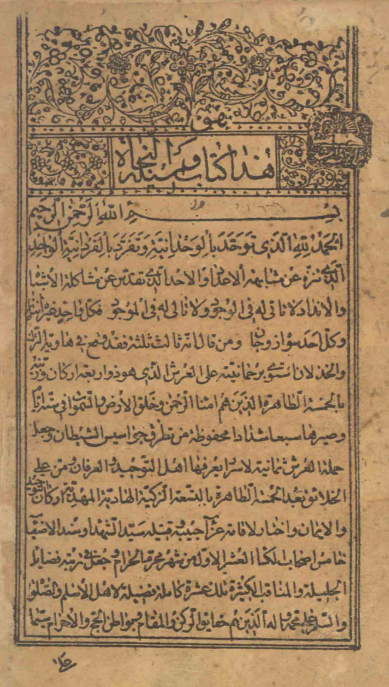 هو
هذا كتاب وسيلة النجاة
بسم الله الرحمن الرحيم
الحمد لله الذى توحد بالوحدانية وتفرد بالفردانية الواحد
الذى تنزه عن مشابهة الاعداد والاحد الذى تقدس عن مشاكلة الاشباه
والانداد لا ثانى له فى الوجود ولا ثالث له فى الموجود فكل واحد غيره
وكل احد سواه زوجان ومن قال انه ثالث ثلثة فقد وقع فى هاوية الشرك
والخذلان استوى برحمانيته على العرش الذى هو ذو اربعة اركان
بالخمسة الطاهرة الذين هم امنا الرحمن وخلق الارض والسموات فى ستة ايام
وصيرها سبعا شدادا محفوظة من تطرق جواسيس الشيطان وجعل
حملة العرش ثمانية لاسرار يعرفها اهل التوحيد والعرفان ومن على
الخلائق بعد الخمسة الطاهرة بالتسعة الزكية الهادية المهدية اركان
والايمان واختار لاقامة عزاء حبيبه قبلة سيد الشهداء وسند الاصفياء
خامس اصحاب الكساء العشر الاول من شهر محرم الحرام وجعل فى فضايل
الجليلة والمناقب الكثيرة تلك عشرة كاملة فضيلة لاهل الاسلام والصلوة
والسلام على محمد واله الذين هم حقايق الركن والمقام ومواطن الحج والاحرام سيما